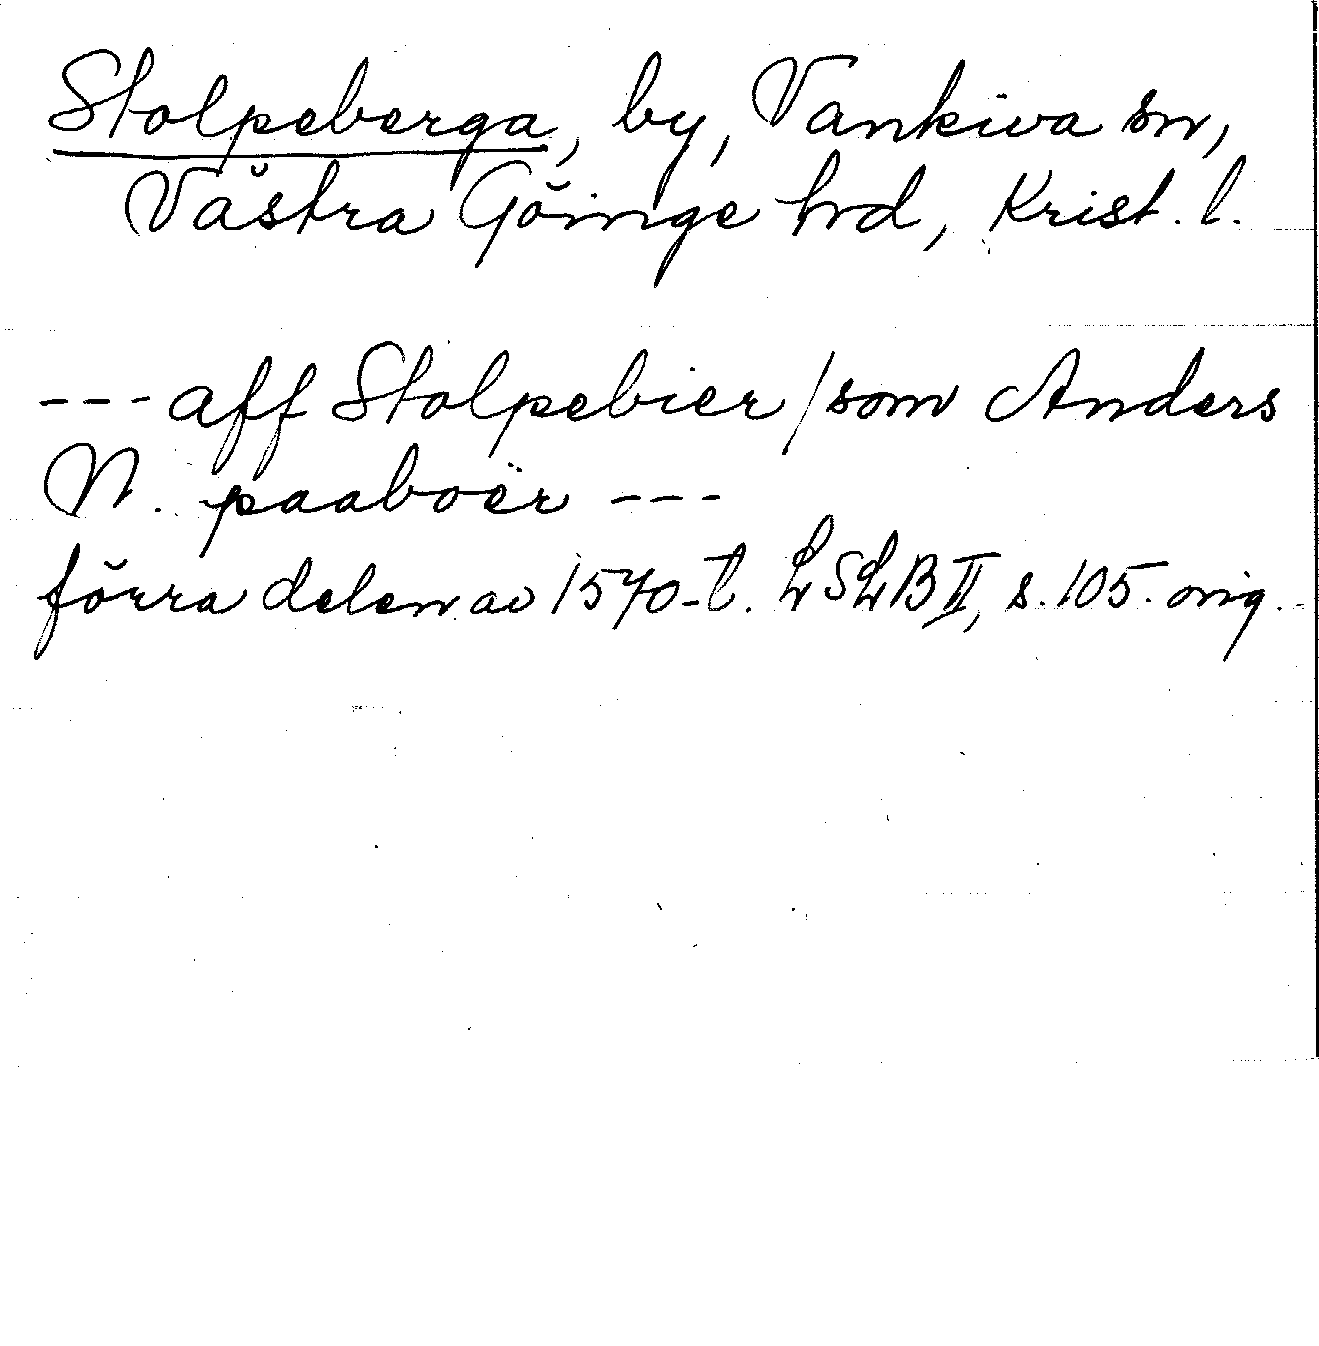 Stolpeberga, by, Vankiva sn,
Västra Göinge hd, Krist. l.
--- aff Stolpebier / som Anders
N. paaboer ---
förra delen av 1570-t. LSLB II, s. 105. orig.